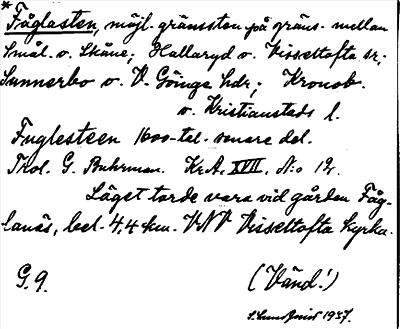 *Fåglasten, möjl. gränssten på gräns. mellan
Smål. o. Skåne; Hallaryd o. Vissettofta sr;
Sunnerbo o. V. Göinge hdr; Kronob.
o. Kristianstads l.
Fuglesteen 1600-tal. senare del.
Trol. G. Buhrman. Kr.A. XVII. N:o 12.
Läget torde vara vid gården Fåg-
lanäs, bel. 4,4 km. VNV Vissettofta kyrka.
G. 9. (Vänd!)
1937.